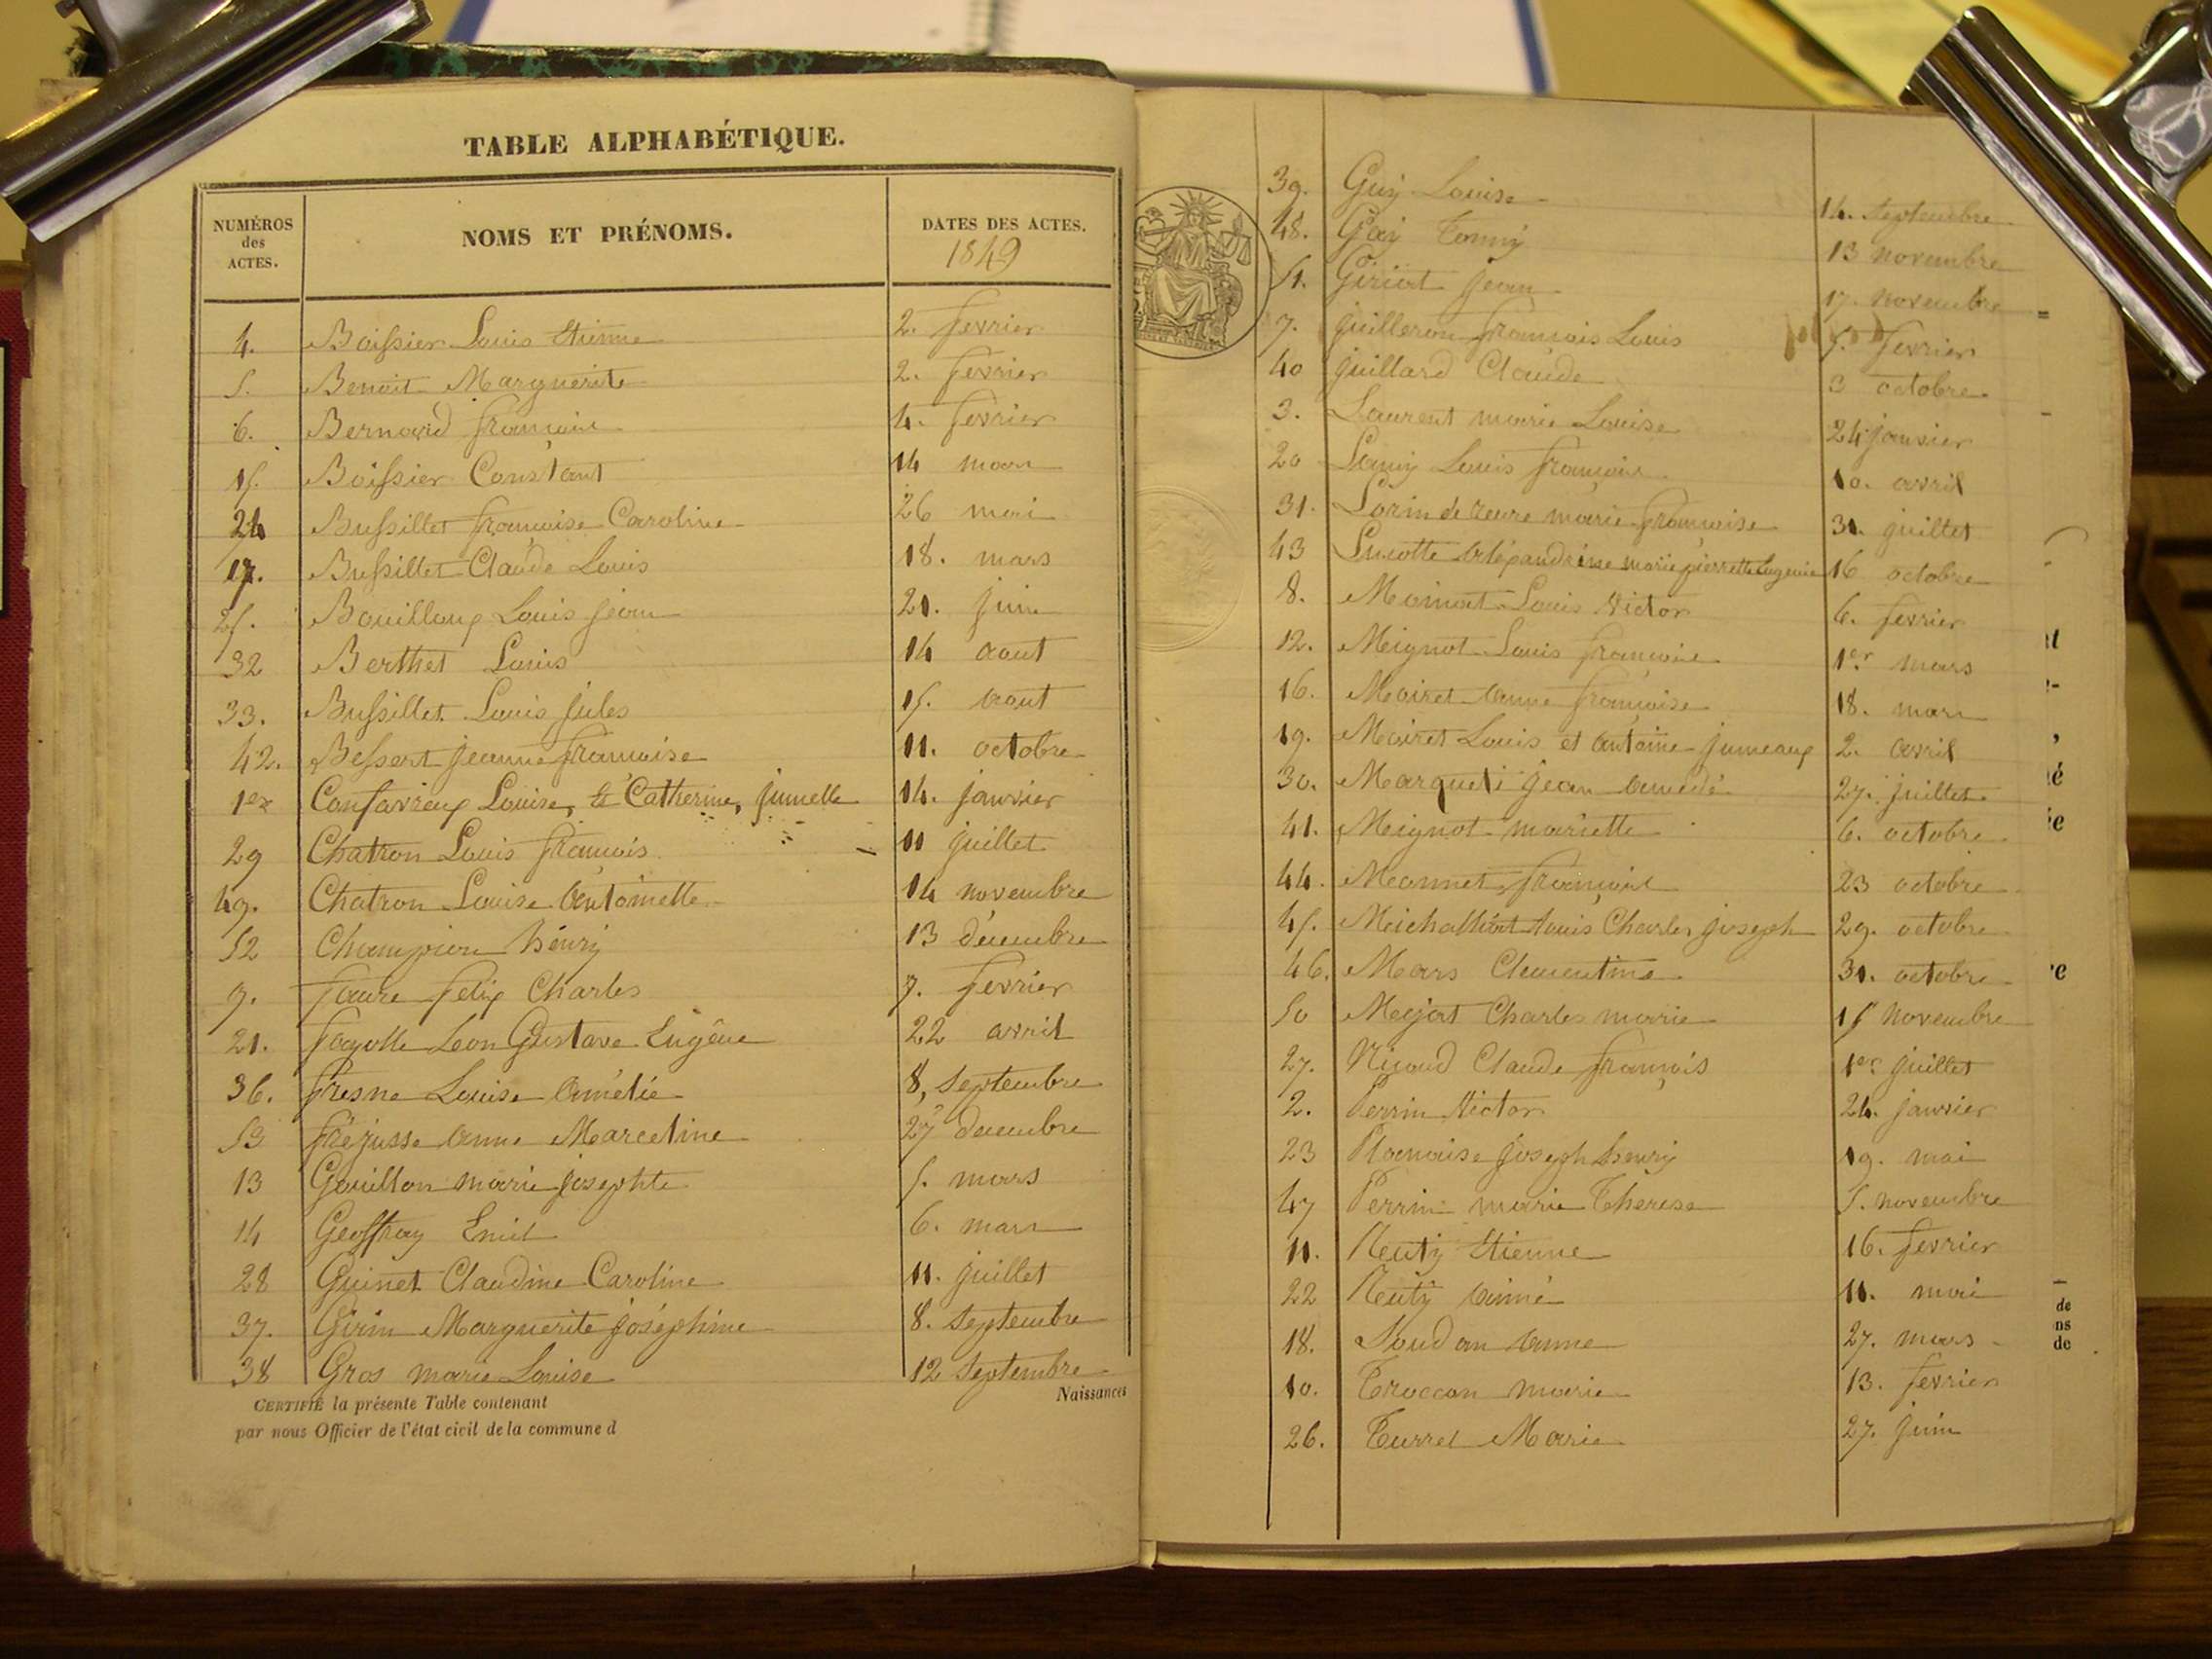 TABLE ALPHABÉTIQUE.
NUMÉROS des ACTES. NOMS ET PRÉNOMS. DATES DES ACTES.
1849
4. Boissier Louis Etienne 2. fevrier
5. Benoit Marguerite 2. fevrier
6. Bernard françois 4. fevrier
15. Boissier Constant 14 mars
24 Bussillet françoise Caroline 26 mai
17. Bussillet Claude Louis 18. mars
25. Bouilloux Louis jean 21. juin
32 Berthet Louis 14 aout
33. Bussillet Louis jules 15. aout
42. Bessert jeanne françoise 11. octobre
1er Confavreux Louise, et Catherine, jumelle 14. janvier
29 Chatron Louis françois 11 juillet
49. Chatron Louise antoinette 14 novembre
52 Champion hénry 13 décembre
9. faure felix Charles 7. fevrier
21. fayolle Leon Gustave Eugêne 22 avril
36. fresne Louise amélie 8, septembre
53 fréjusse anne Marceline 27 decembre
13 Gouillon marie josephte 5. mars
14 Geoffray Emil 6. mars
28 Guinet Claudine Caroline 11. juillet
37. Girin Marguerite joséphine 8. septembre
38 Gros marie Louise 12 septembre
CERTIFIÉ la présente Table contenant Naissances
par nous Officier de l'état civil de la commune d
39. Guy Louise 14. septembre
48. Gay Tonny 13 novembre
51. Giriat jean 17. novembre
7. guilleron françois Louis 5. fevrier
40 guillard Claude 3 octobre
3. Laurent marie Louise 24 janvier
20 Lamy Louis françois 10. avril
31. Lorin de reure marie françoise 31. juillet
43 Lucotte alexandrine marie pierrette Eugenie 16 octobre
8. Moinat Louis Victor 6. fevrier
12. Meignot Louis françois 1er mars
16. Mairet anne françoise 18. mars
19. Mairet Louis et antoine jumeaux 2. avril
30. Marqueti jean amedé 27. juillet
41. Meignot mariette 6. octobre
44. Monnet, françois 23 octobre
45. Louis Charles joseph 29. octobre
46. Mars Clementine 31. octobre
50 Mejat Charles marie 15 novembre
27. Nicoud Claude françois 1er juillet
2. Perrin Victor 24. janvier
23 Plamoise joseph henry 19. mai
47 Perrin marie Therese 5. novembre
11. Reuty Etienne 16. fevrier
22 Reuty aimé 11. mai
18. Soudan anne 27. mars
10. Troccon marie 13. fevrier
26. Turrel Marie 27. juin